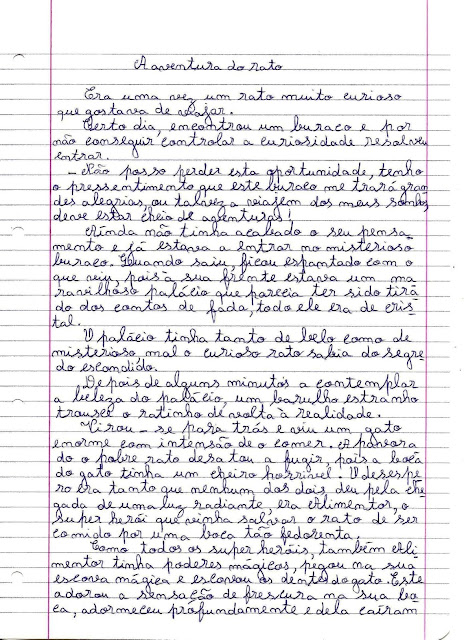 A aventura do rato
Era uma vez um rato muito curioso
que gostava de viajar.
Certo dia, encontrou um buraco e por
não conseguir controlar a curiosidade resolveu
entrar.
- Não posso perder esta oportunidade, tenho
o pressentimento que este buraco me trará gran
des alegrias, ou talvez a viajem dos meus sonhos,
deve estar cheio de aventuras!
Ainda não tinha acabado o seu pensa-
mento e já estava a entrar no misterioso
buraco. Quando saiu, ficou espantado com o
que viu, pois à sua frente estava um ma
ravilhoso palácio que parecia ter sido tira
do dos contos de fada, todo ele era de cris
tal.
O palácio tinha tanto de belo como de
misterioso, mal o curioso rato sabia do segre
do escondido.
Depois de alguns minutos a contemplar
a beleza do palácio, um barulho estranho
trouxe o ratinho de volta à realidade.
Virou-se para trás e viu um gato
enorme com intensão de o comer. Apavora
do o pobre rato desatou a fugir, pois a boca
do gato tinha um cheiro horrível. O desespe
ro era tanto que nenhum dos dois deu pela che
gada de uma luz radiante, era Alimentor, o
super herói que vinha salvar o rato de ser
comido por uma boca tão fedorenta.
Como todos os super heróis, também Ali
mentor tinha poderes mágicos, pegou na sua
escova mágica e escovou os dentes do gato. Este
adorou a sensação de frescura na sua bo
ca, adormeceu profundamente e dela caíram